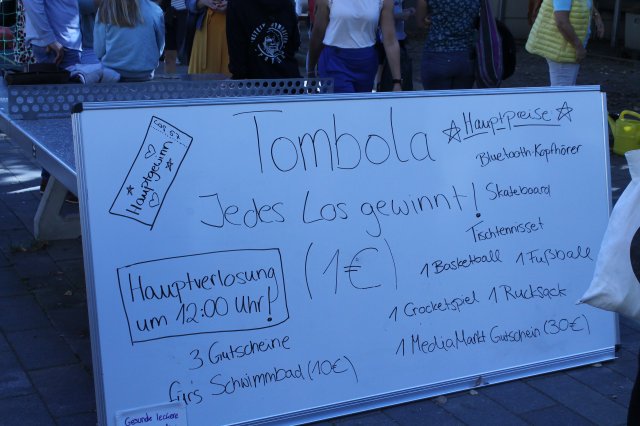 Los 57
Hauptgewinn
Tombola
Jedes Los gewinnt!
(1€)
Hauptverlosung
um 12:00 Uhr!
3 Gutscheine
fürs Schwimmbad (10€)
Hauptpreise
Bluetooth Kopfhörer
Skateboard
Tischtennisset
1 Basketball 1 Fußball
1 Crocketspiel 1 Rucksack
1 MediaMarkt Gutschein (30€)
Gesunde leckere